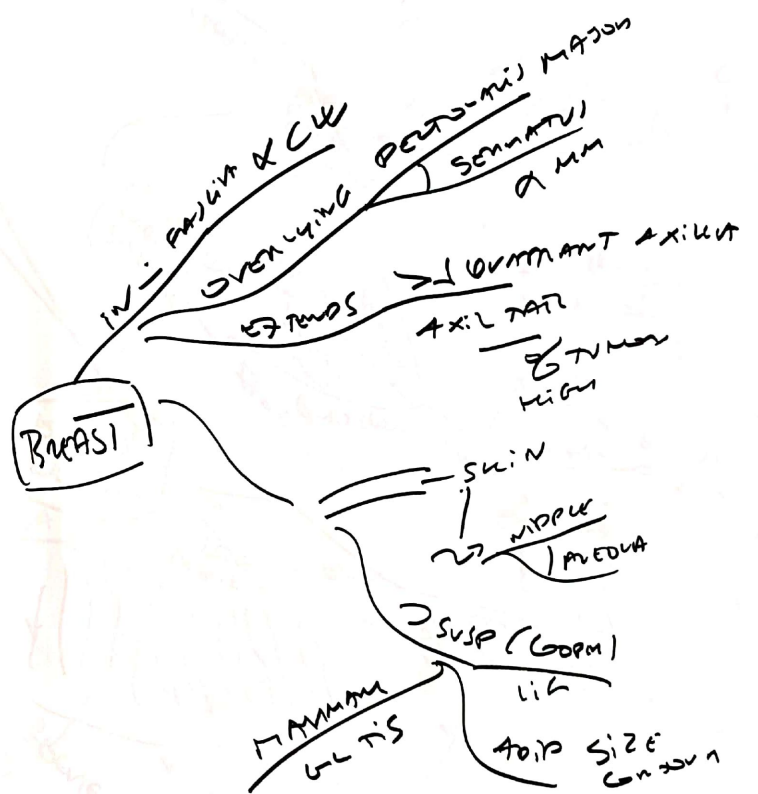 IN FASCIA & CW
OVERLYING
PECTORALIS MAJOR
SERRATUS
& MM
EXTENDS
QUADRANT AXILLA
AXIL TAIL
% TUMOR
HIGH
BREAST
SKIN
NIPPLE
AREOLA
SUSP (COOPER)
LIG
MAMMARY
GL TIS
ADIP SIZE
CONTOUR